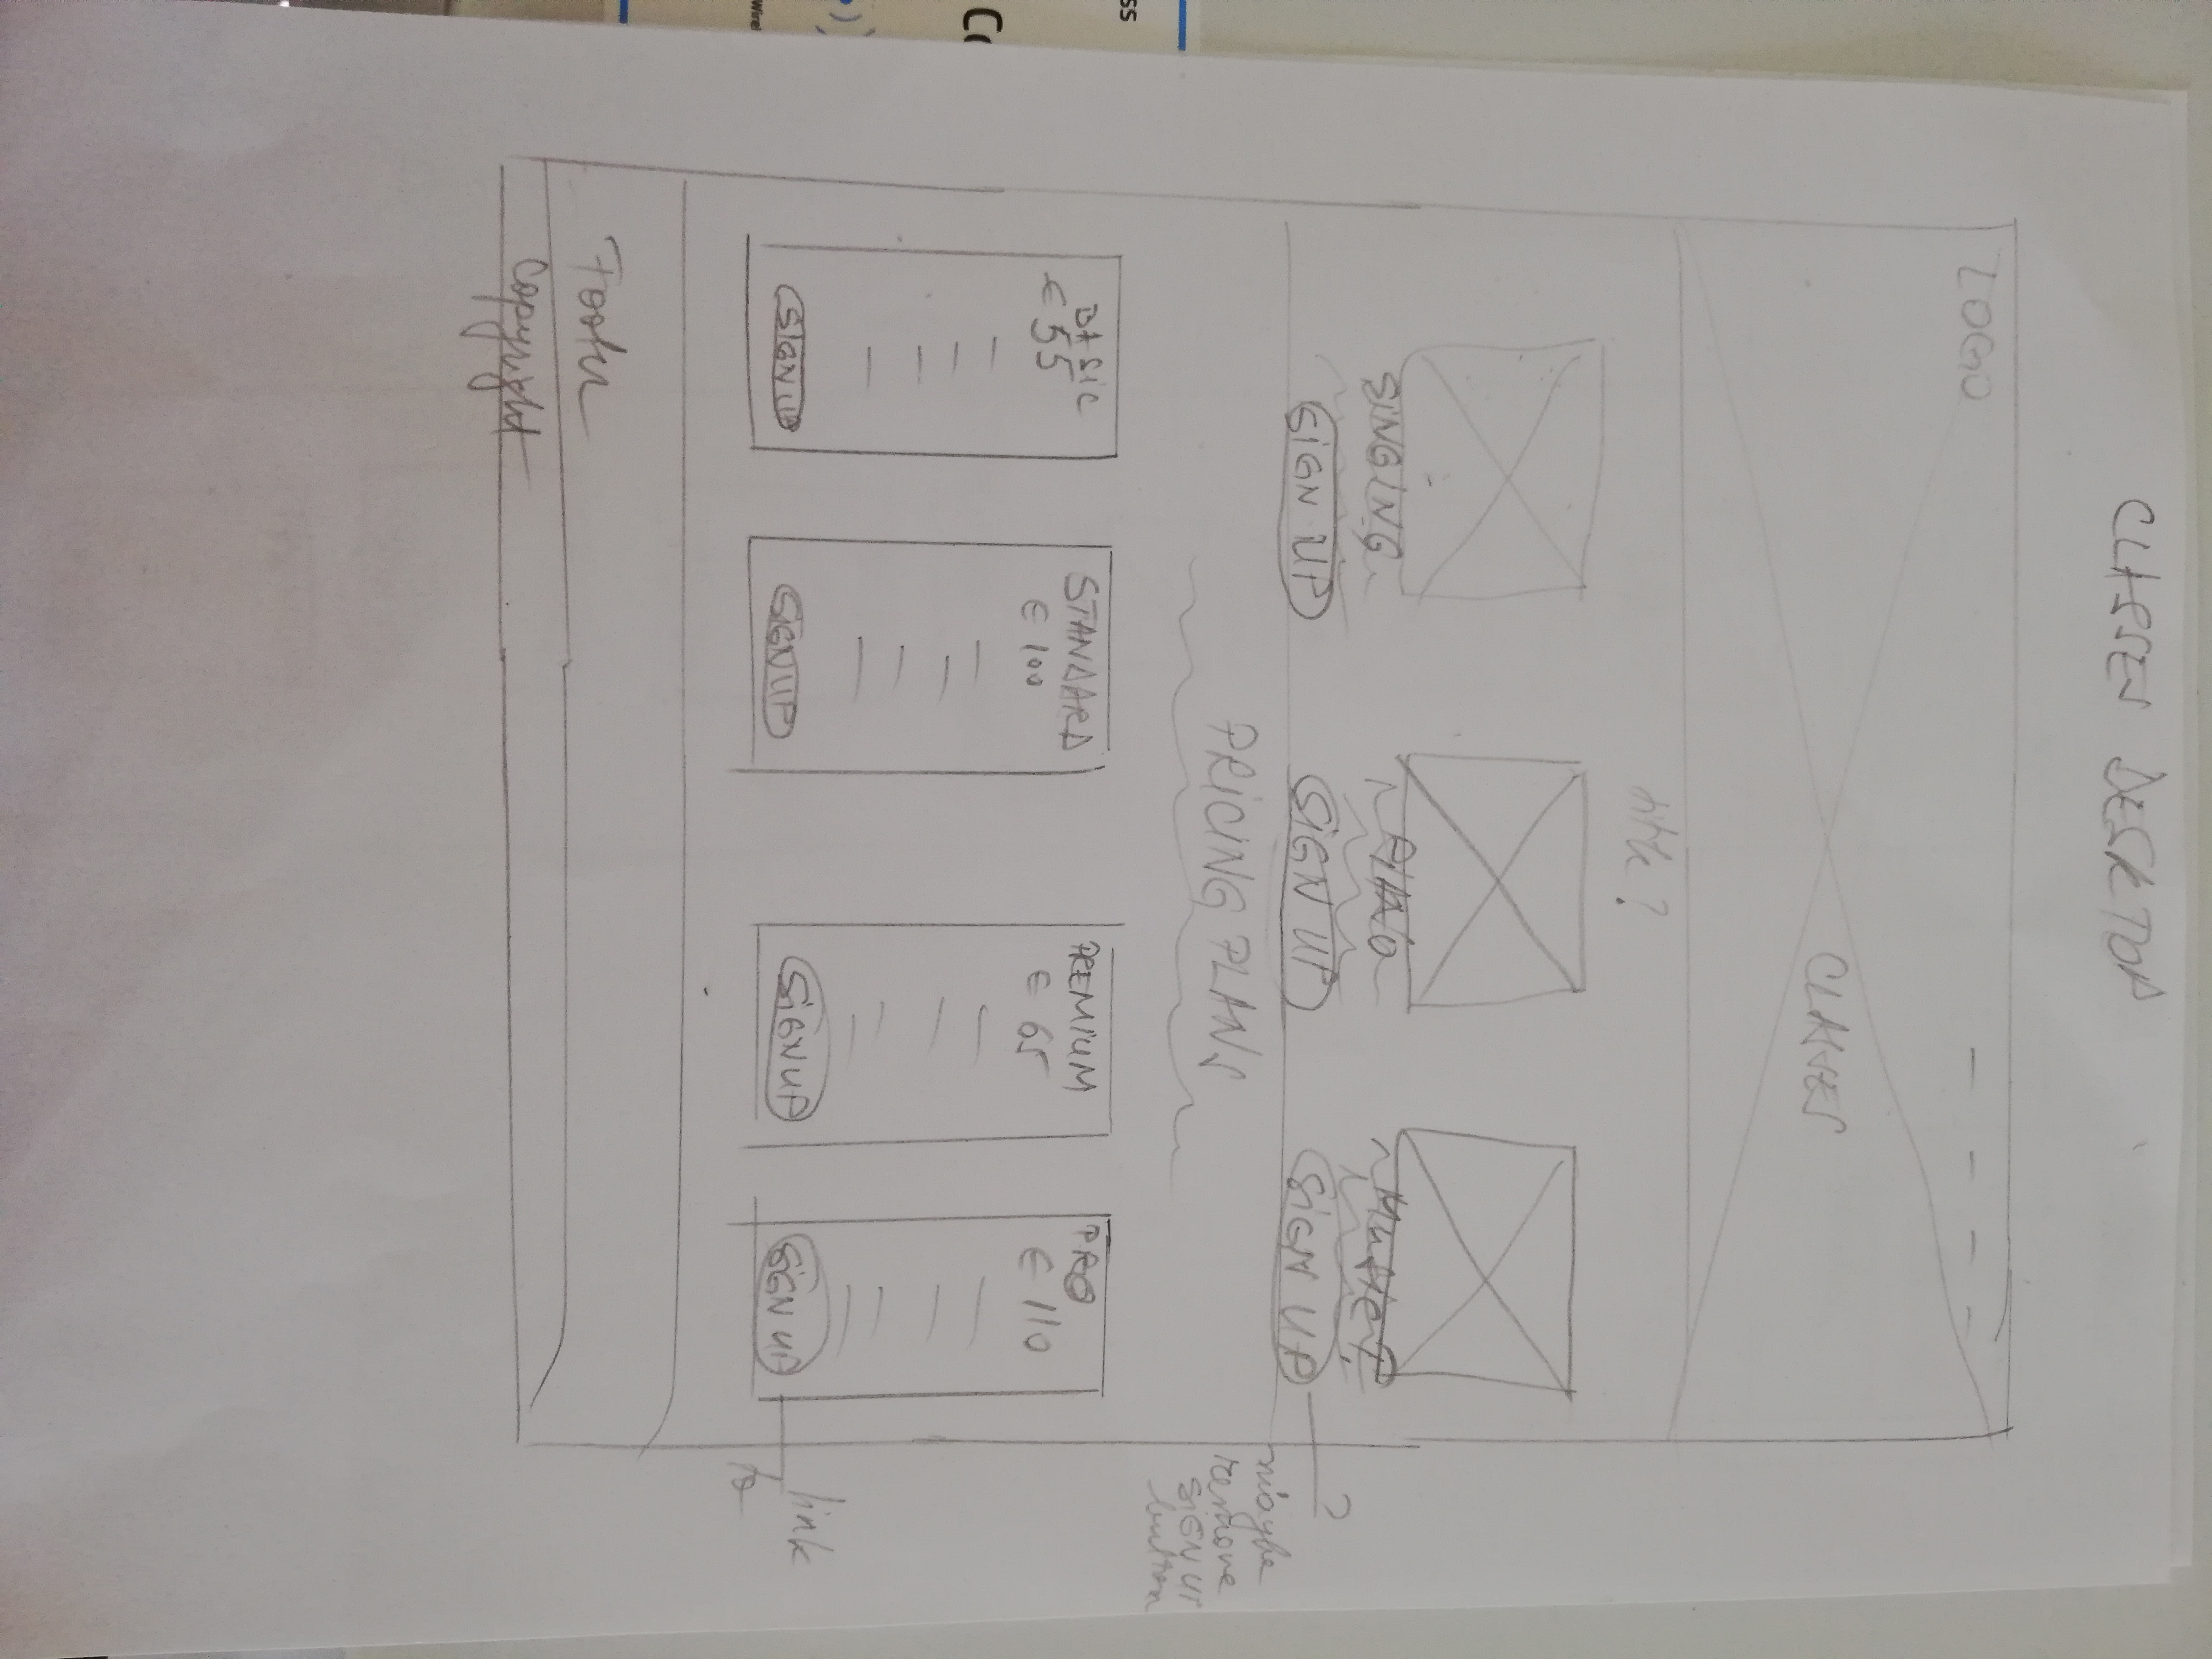 ss
Co
Wirel
CLASSES DESKTOP
LOGO
CLASSES
title?
SINGING
PIANO
SIGN UP
SIGN UP
SIGN UP
?
maybe
remove
SIGN UP
button
PRICING PLANS
BASIC
€ 55
SIGN UP
STANDARD
€ 100
SIGN UP
PREMIUM
€ 65
SIGN UP
PRO
€ 110
SIGN UP
link
Footer
Copyright